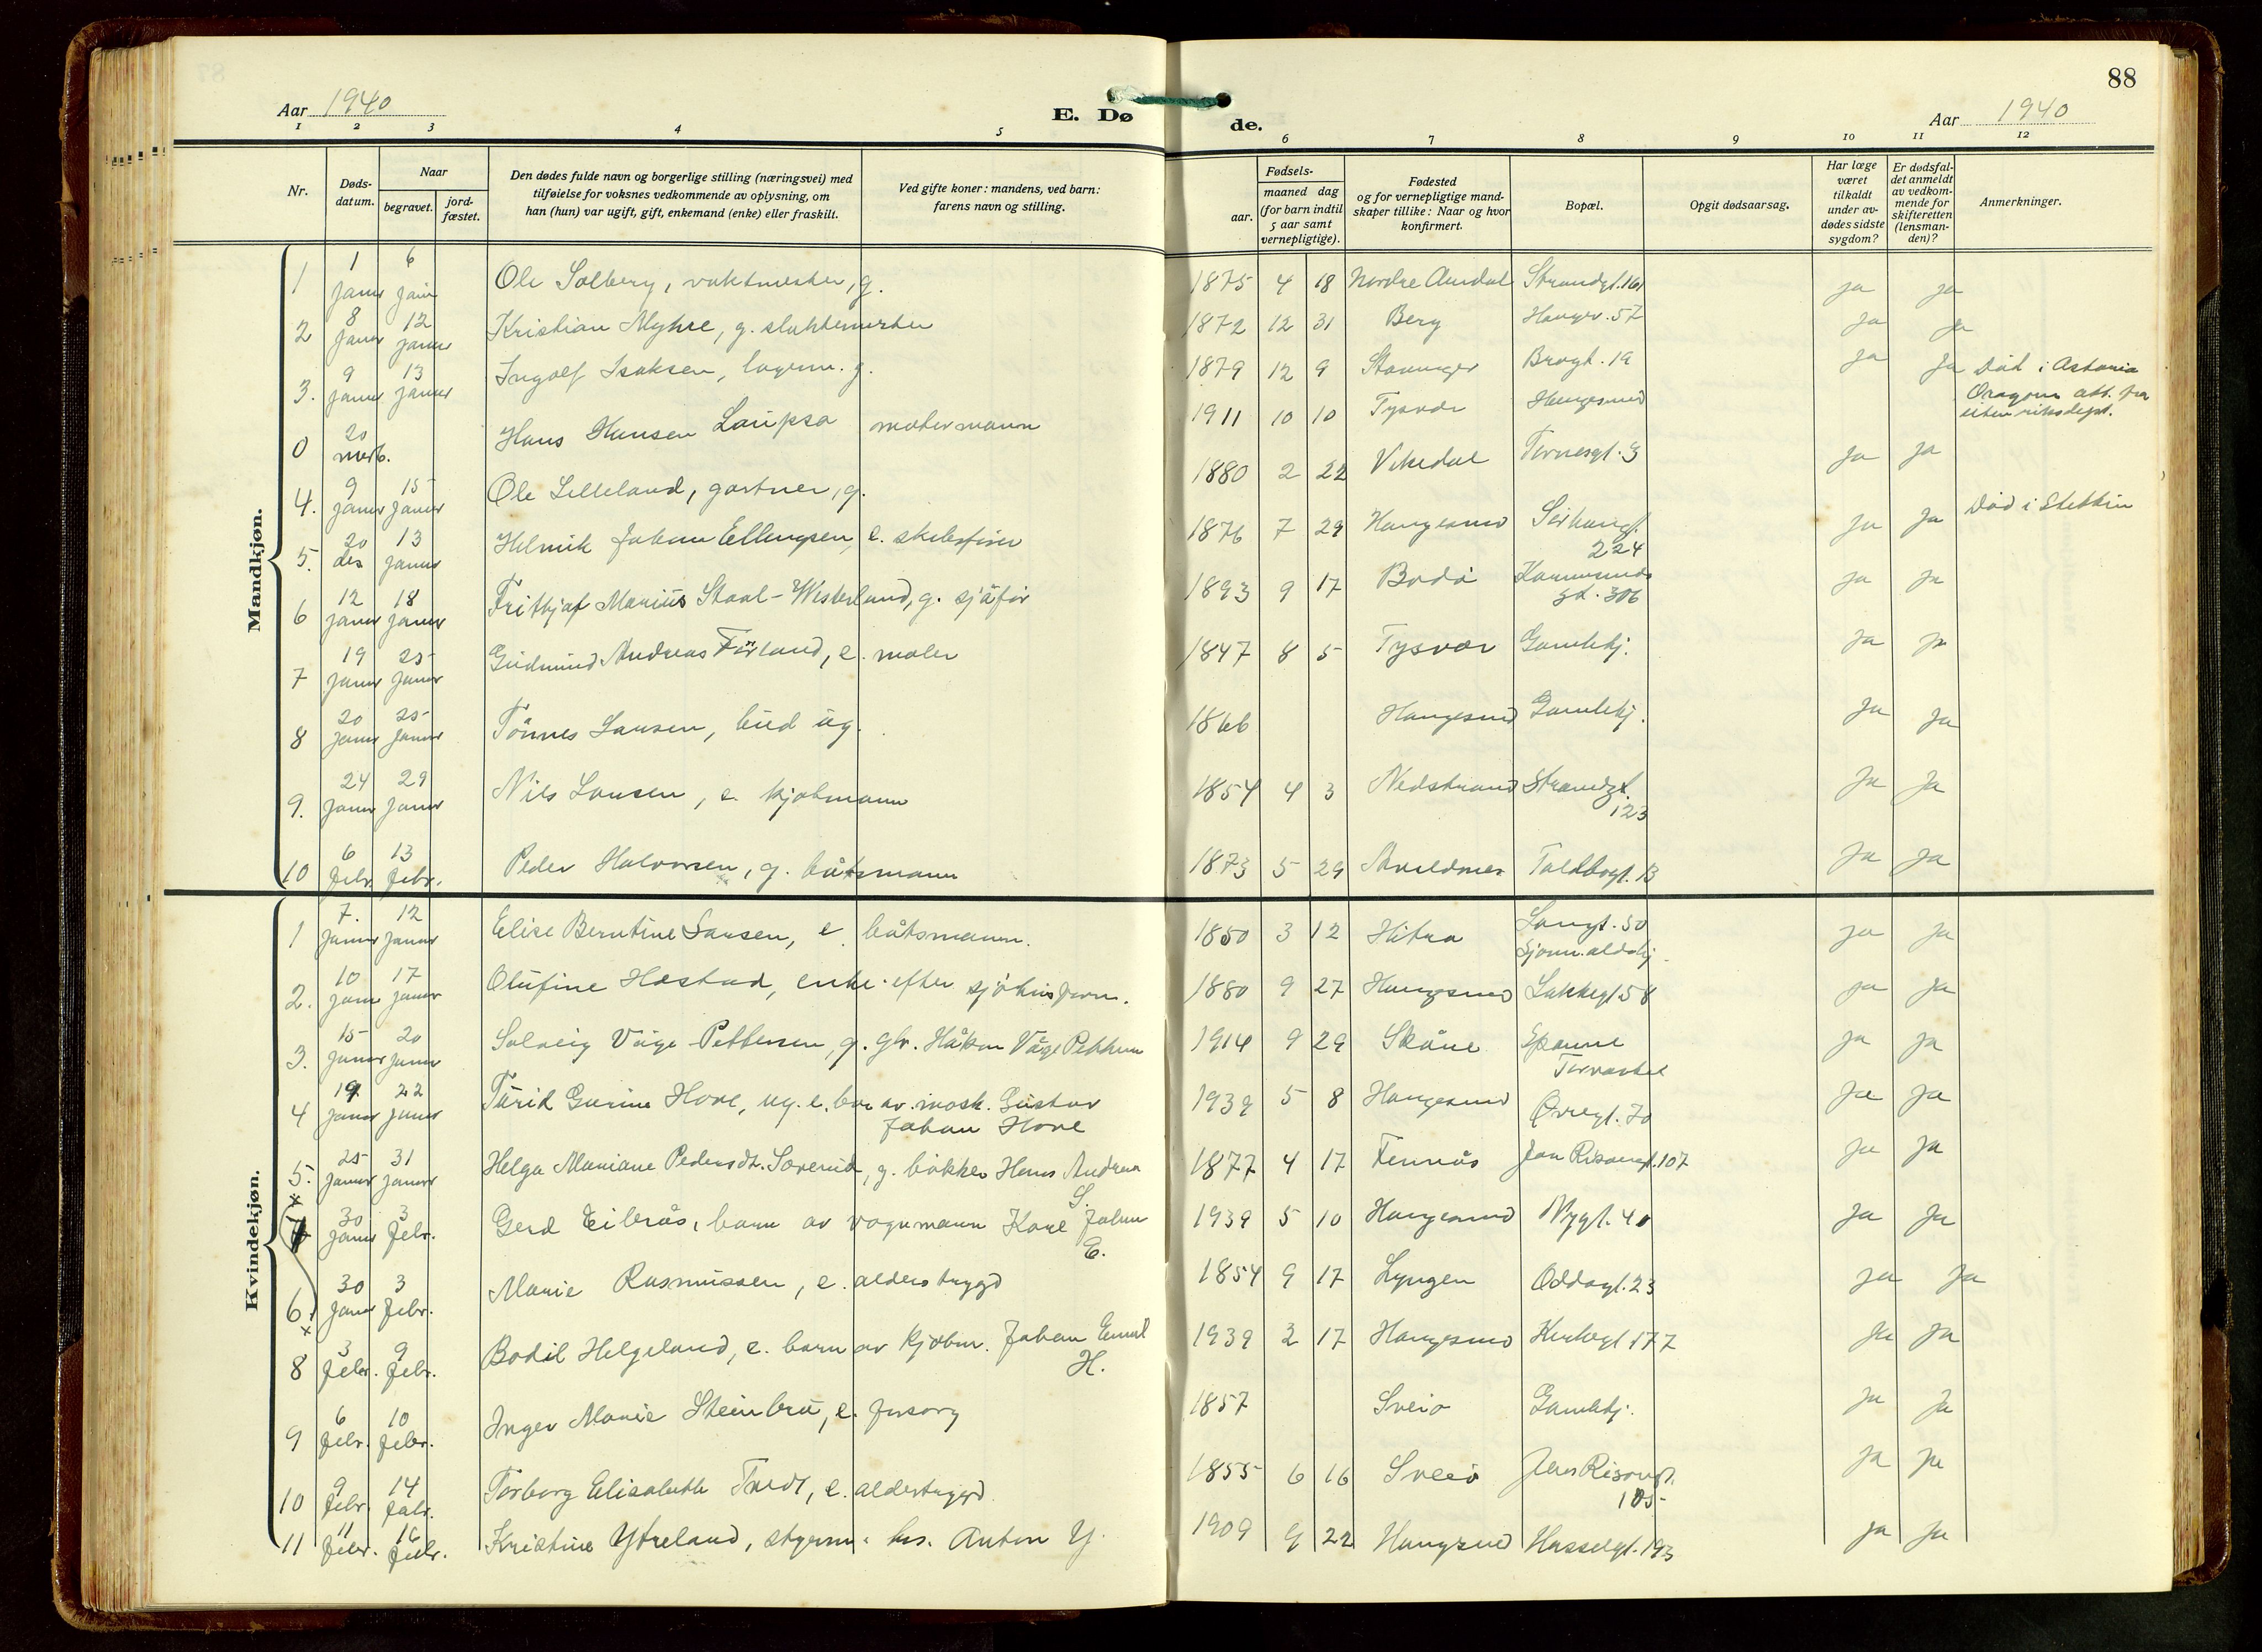 88
Aar 1940
E. Dø de.
Aar 1940
1 2 3 4 5 6 7 8 9 10 11 12
Nr.
Døds-datum.
Naar
begravet.
jord-fæstet.
Den dødes fulde navn og borgerlige stilling (næringsvei) med
tilføielse for voksnes vedkommende av oplysning, om
han (hun) var ugift, gift, enkemand (enke) eller fraskilt.
Ved gifte koner: mandens, ved barn:
farens navn og stilling.
Fødsels-
aar.
maaned dag
(for barn indtil
5 aar samt
vernepligtige).
Fødested
og for vernepligtige mand-
skaper tillike: Naar og hvor
konfirmert.
Bopæl.
Opgit dødsaarsag.
Har læge
været
tilkaldt
under av-
dødes sidste
sygdom?
Er dødsfal-
det anmeldt
av vedkom-
mende for
skifteretten
(lensman-
den)?
Anmerkninger.
Mandkjøn.
1 1 janr 6 janr Ole Solberg, vaktmester, g. 1875 4 18 Nordre Aurdal Strandgt. 161 ja ja
2 8 janr 12 janr Kristian Myhre, g. slaktermester 1872 12 31 Berg Haugev. 57 ja ja
3. 9 janr 13 janr Ingolf Isaksen, lagerm. g. 1879 12 9 Stavanger Brogt. 19 ja ja
0 20 Hans Hansen Laupsa motormann 1911 10 10 Tysvær Haugesund Död i Astoria
Oragon att. fra
uten riksdept.
4. 9 janr 15 janr Ole Lilleland, gartner, g. 1880 2 22 Vikedal 3 ja ja
5. 20 des 13 janr Helmik Johan Ellingsen, e. skibsfører 1876 7 29 Haugesund Sørhaugt.
224 ja ja Död i Stettin
6 12 janr 18 janr Fritjof Marius Staal-Westerlund, g. sjåfør 1893 9 17 Bodö Karmsunds
gt. 306 ja ja
7 19 janr 25 janr Gudmund Andreas Førland, e. maler 1847 8 5 Tysvær Gamlehj. ja ja
8 20 janr 25 janr Tönnes Larsen, bud ug. 1866 Haugesund Gamlehj. ja ja
9. 24 janr 29 janr Nils Larsen, e. kjøbmann 1854 4 3 Nedstrand Strandgt.
123 ja ja
10 6 febr 13 febr. Peder Halvorsen, g. båtsmann 1873 5 29 Skudenes Toldbogt. 13 ja ja
Kvindekjøn.
1 7. janr 12 janr Elise Berntine Larsen, e. båtsmann. 1850 3 12 Hitra Langt. 50
Sjøm. aldshj. ja ja
2. 10 janr 17 janr Olufine Hæstad, enke efter sjøhusform. 1880 9 27 Haugesund Lakkegt. 58 ja ja
3. 15 janr 20 janr Solveig Våge Pettersen, g. Håkon Våge Pettersen 1914 9 29 Skåne Spanne
Torvastad ja ja
4 19 janr 22 janr Turid Gurine Hove, ug. e. barn av mask. Gustav
Johan Hove 1939 5 8 Haugesund Øvregt. 70 ja ja
5. 25 janr 31 janr Helga Mariane Pedersdt. Sørerud, g. bøkker Hans Andreas
S. 1877 4 17 Jon Risangt. 107 ja ja
30 janr 3 febr. Gerd Eiberås, barn av vognmann Kåre Johan
E. 1939 5 10 Haugesund Nygt. 40 ja ja
6. 30 janr 3 febr. Marie Rasmussen, e. alderstrygd 1854 9 17 Lyngen Oddagt. 23 ja ja
8 3 febr. 9 febr. Bodil Helgeland, e. barn av kjøbm. Johan Emil
H. 1939 2 17 Haugesund Kirkegt 177 ja ja
9 6 febr. 10 febr. Inger Marie Steinbru, e. forsorg 1857 Sveio Gamlehj. ja ja
10 9 febr. 14 febr. Torborg Elisabeth Tveit, e. alderstrygd. 1855 6 16 Sveio Jens Risøegt.
105 ja ja
11 11 febr. 16 febr. Kristine Ytreland, styrm. hs. Anton Y. 1909 9 22 Haugesund Hasselgt. 193 ja ja